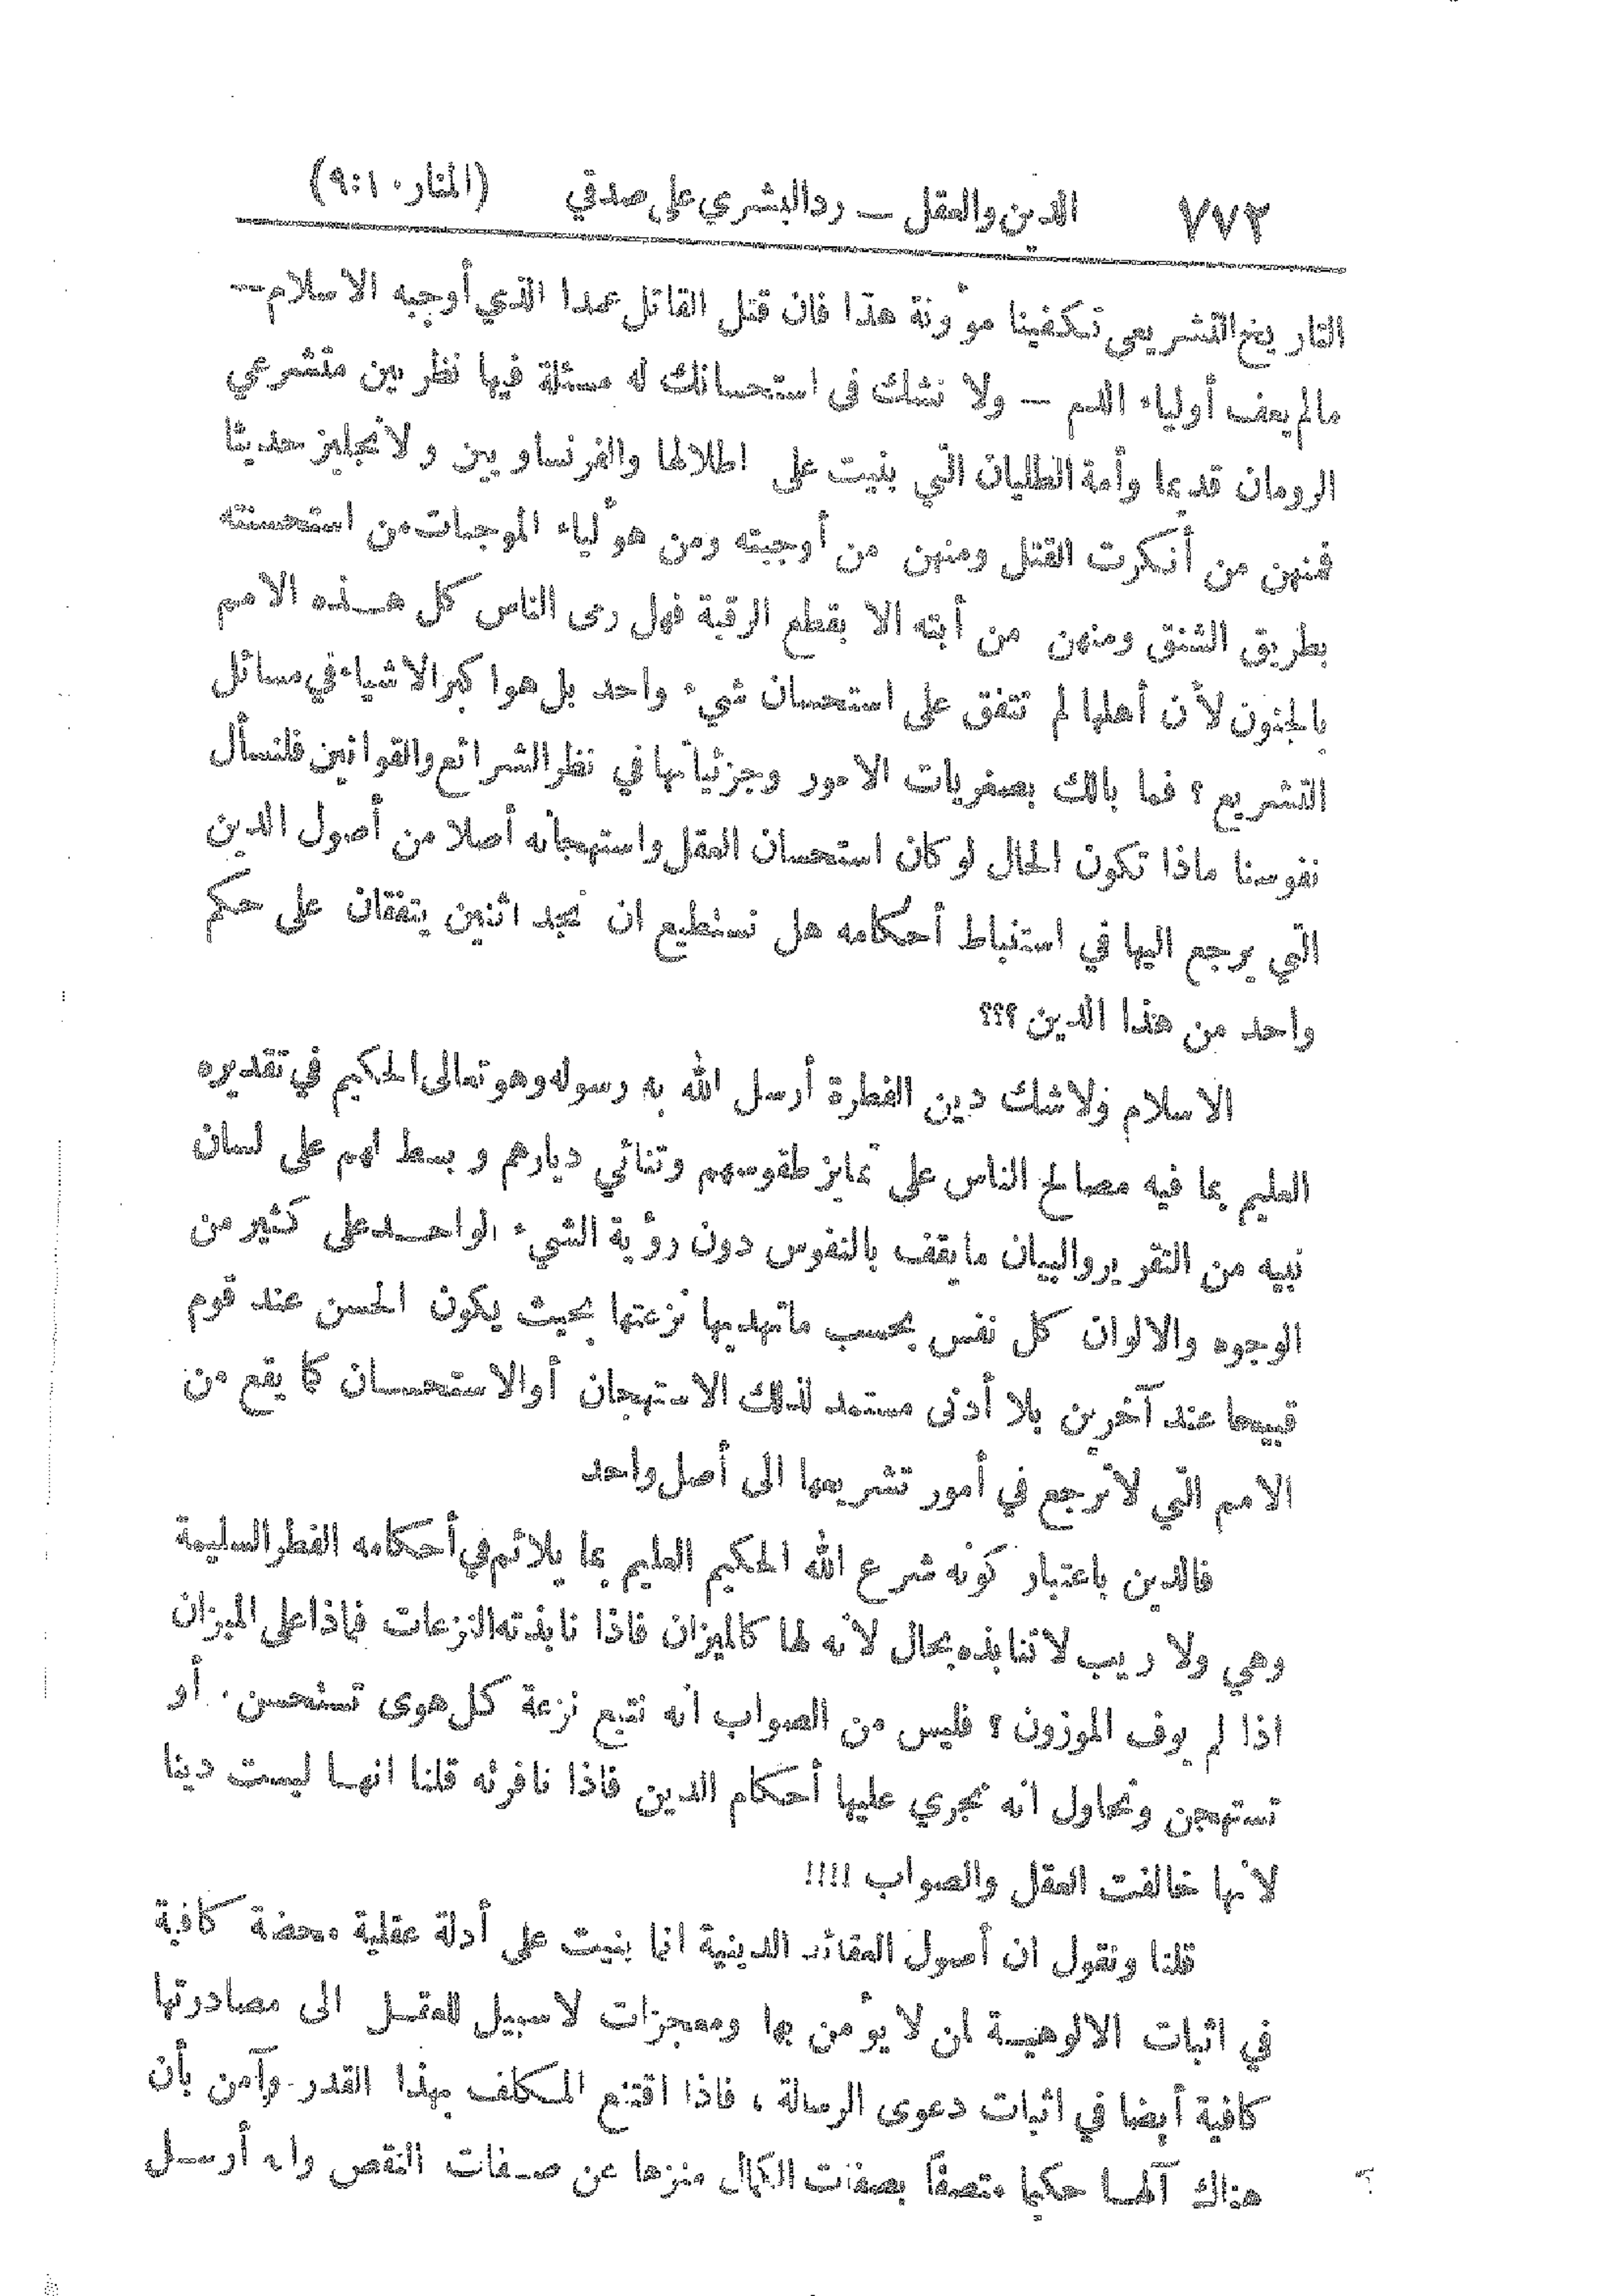 ٧٧٢ الدين والعقل — رد البشري على صدقي (المنار ١٠:٩)
التاريخ التشريعي تكفينا موٴونة هذا فان قتل القاتل عمدا الذي أوجبه الاسلام —
مالم يعف أولياء الدم — ولا نشك فى استحسانك له مسئلة فيها نظر بين متشرعي
الرومان قديما وأمة الطليان التي بنيت على اطلالها والفرنساويين ولانجليز حديثا
فمنهن من أنكرت القتل ومنهن من أوجبته ومن هوٴلياء الموجبات من استحسنته
بطريق الشنق ومنهن من أبته الا بقطع الرقبة فهل رى الناس كل هـذه الامم
بالجنون لأن أهلها لم تتفق على استحسان شيء واحد بل هو اكبر الاشياء في مسائل
التشريع ؟ فما بالك بصغريات الامور وجزئياتها في نظر الشرائع والقوانين فلنسأل
نفوسنا ماذا تكون الحال لو كان استحسان العقل واستهجانه أصلا من أصول الدين
التي يرجع اليها في استنباط أحكامه هل نستطيع ان نجد اثنين يتفقان على حكم
واحد من هذا الدين ؟؟؟
الاسلام ولا شك دين الفطرة أرسل الله به رسوله وهو تعالى الحكيم في تقديره
العليم بما فيه مصالح الناس على تمايز طقوسهم وتنائي ديارهم وبسط لهم على لسان
نبيه من التقرير والبيان ما يقف بالنفوس دون روٴية الشيء الواحـد على كثير من
الوجوه والالوان كل نفس بحسب ماتهديها نزعتها بحيث يكون الحسن عند قوم
قبيحا عند آخرين بلا أدنى مستمد لذلك الاستهجان أو الاستحسـان كما يقع من
الامم التي لا ترجع في أمور تشريعها الى أصل واحد
فالدين باعتبار كونه شرع الله الحكيم العليم بما يلائم في أحكامه الفطر السليمة
وهي ولا ريب لا تنابذه بحال لانه لها كالميزان فاذا نابذته النزعات فماذا على الميزان
اذا لم يوف الموزون ؟ فليس من الصواب انه نتبع نزعة كل هوى تستحسن. أو
تستهجن ونحاول انه نجري عليها أحكام الدين فاذا نافرته قلنا انهـا ليست دينا
لانها خالفت العقل والصواب !!!!
قلنا ونقول ان أصول العقائد الدينية انما بنيت على أدلة عقلية محضة كافية
في اثبات الالوهيـة لمن لا يوٴمن بها ومعجزات لاسبيل للعقـل الى مصادرتها
كافية أيضا في اثبات دعوى الرسالة ، فاذا اقتنع المكلف بهذا القدر وآمن بأن
هناك آلهـا حكيما متصفا بصفات الكمال منزها عن صـفات النقص وانه أرسـل